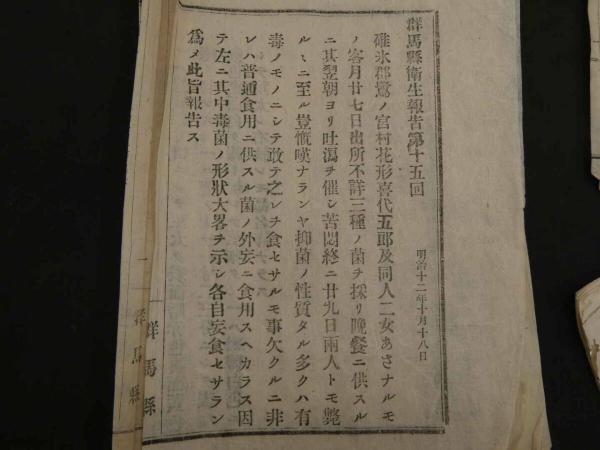 群馬縣衛生報告第十五回
明治十二年十月十八日
碓氷郡鷺ノ宮村花形喜代五郎及同人二女あさナルモ
ノ客月廿七日出所不詳三種ノ菌ヲ採リ晩餐ニ供スル
ニ其翌朝ヨリ吐瀉ヲ催シ苦悶終ニ廿九日兩人トモ斃
ルヽニ至ル豈慨嘆ナランヤ抑菌ノ性質タル多クハ有
毒ノモノニシテ敢テ之レヲ食セサルモ事欠クルニ非
レハ普通食用ニ供スル菌ノ外妄ニ食用スヘカラス因
テ左ニ其中毒菌ノ形狀大畧ヲ示シ各自妄食セサラン
爲メ此旨報告ス
群馬縣
群馬縣